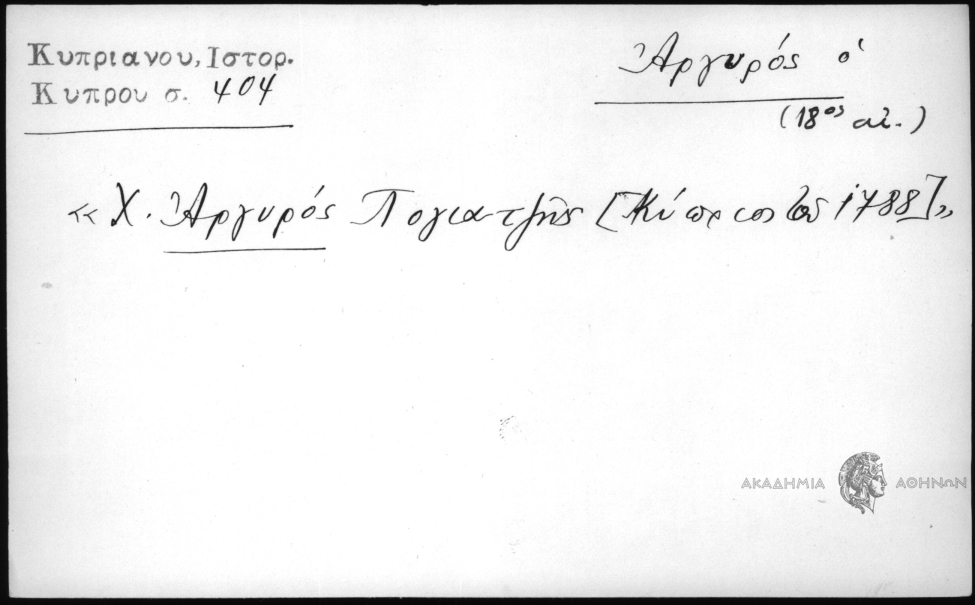 Κυπριανου, Ιστορ.
Κυπρου σ. 404
Ἀργυρός ὁ
(18ος αἰ.)
« Χ. Ἀργυρός Πογιατζῆς [Κύπριος 1788] »
ΑΚΑΔΗΜΙΑ ΑΘΗΝΩΝ